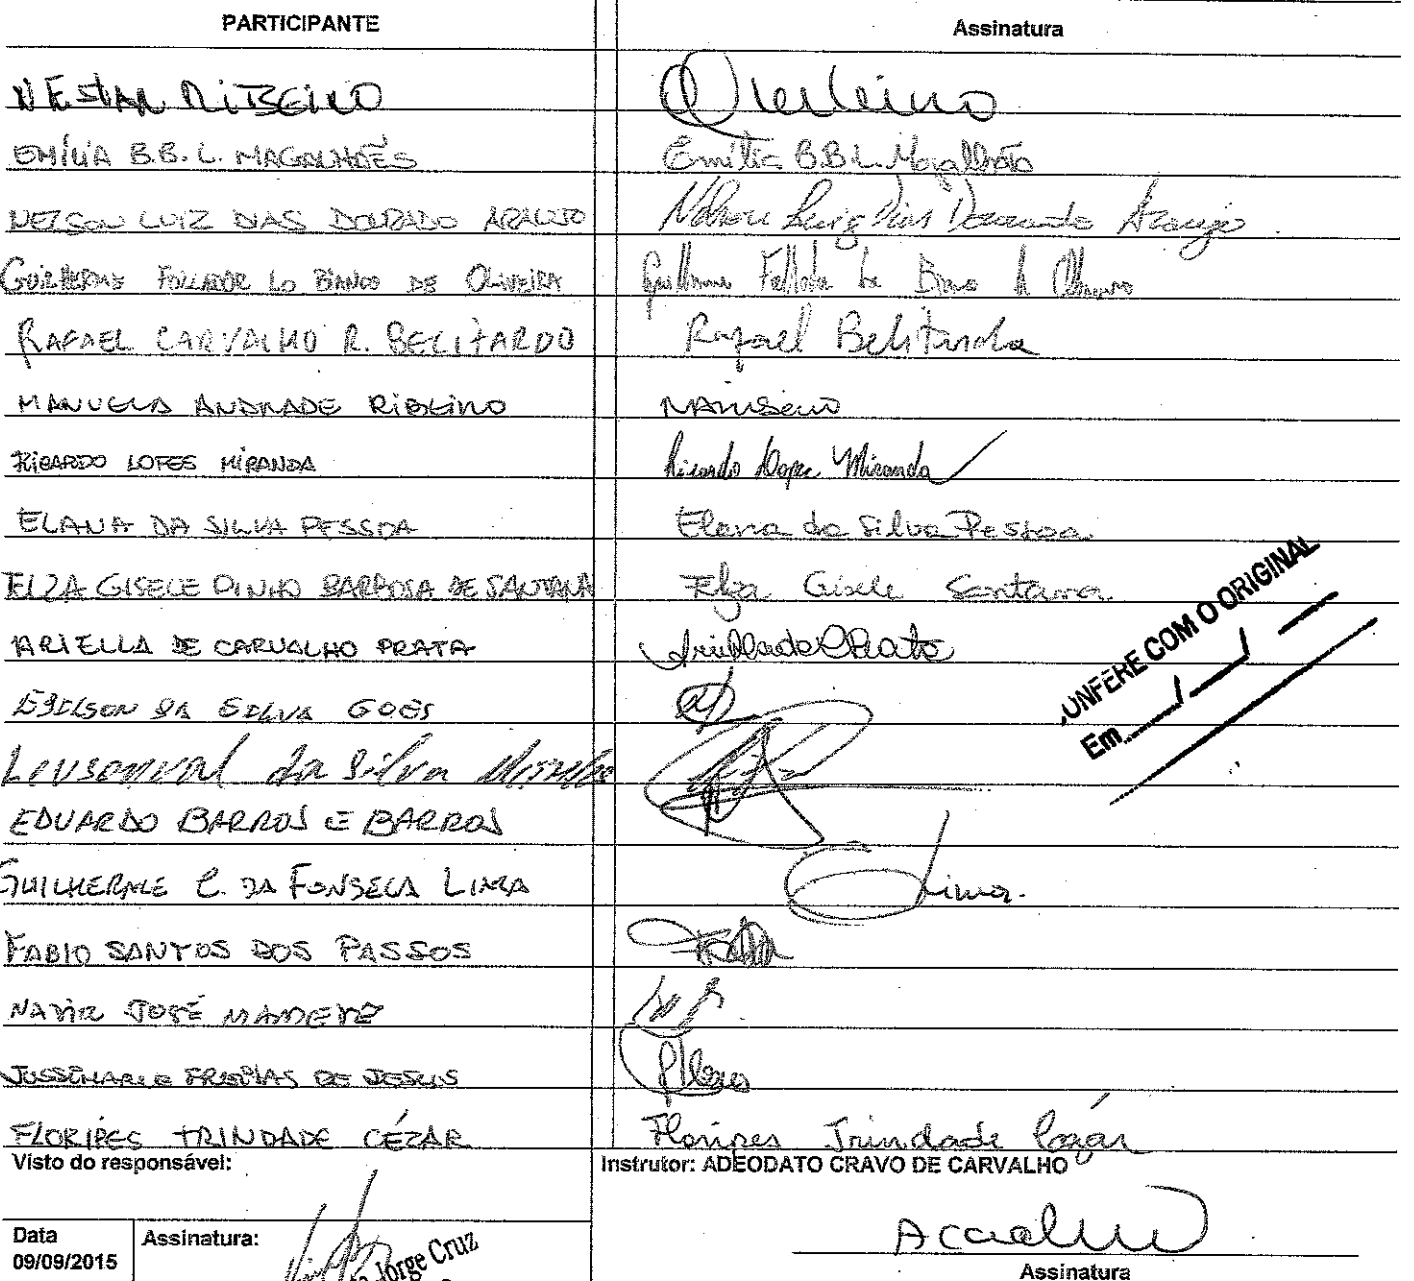 PARTICIPANTE Assinatura
NESTAR RIBEIRO
EMÍLIA B.B.L. MAGALHÃES Emília B.B.L. Magalhães
NELSON LUIZ DIAS DOURADO ARAUJO Nelson Luiz Dias Dourado Araujo
GUILHERME FOLLADOR LO BIANCO DE OLIVEIRA Guilherme Follador Lo Bianco de Oliveira
RAFAEL CARVALHO R. BELITARDO Rafael Belitardo
MANUELA ANDRADE RIBEIRO
RICARDO LOPES MIRANDA Ricardo Lopes Miranda
ELANA DA SILVA PESSOA Elana da Silva Pessoa
ELZA GISELE PINHO BARBOSA DE SANTANA Elza Gisele Santana
ARIELLA DE CARVALHO PRATA Ariella de C Prata
EDILSON DA SILVA GOES
da Silva
EDUARDO BARROS E BARROS
GUILHERME C. DA FONSECA LIMA Lima.
FABIO SANTOS DOS PASSOS
NADIR JOSÉ MAMEDE
JUSSIMARIE FREITAS DE JESUS
FLORIPES TRINDADE CÉZAR Floripes Trindade Cézar
CONFERE COM O ORIGINAL
Em / /
Visto do responsável: Instrutor: ADEODATO CRAVO DE CARVALHO
Data Assinatura:
09/09/2015
Jorge Cruz
Assinatura